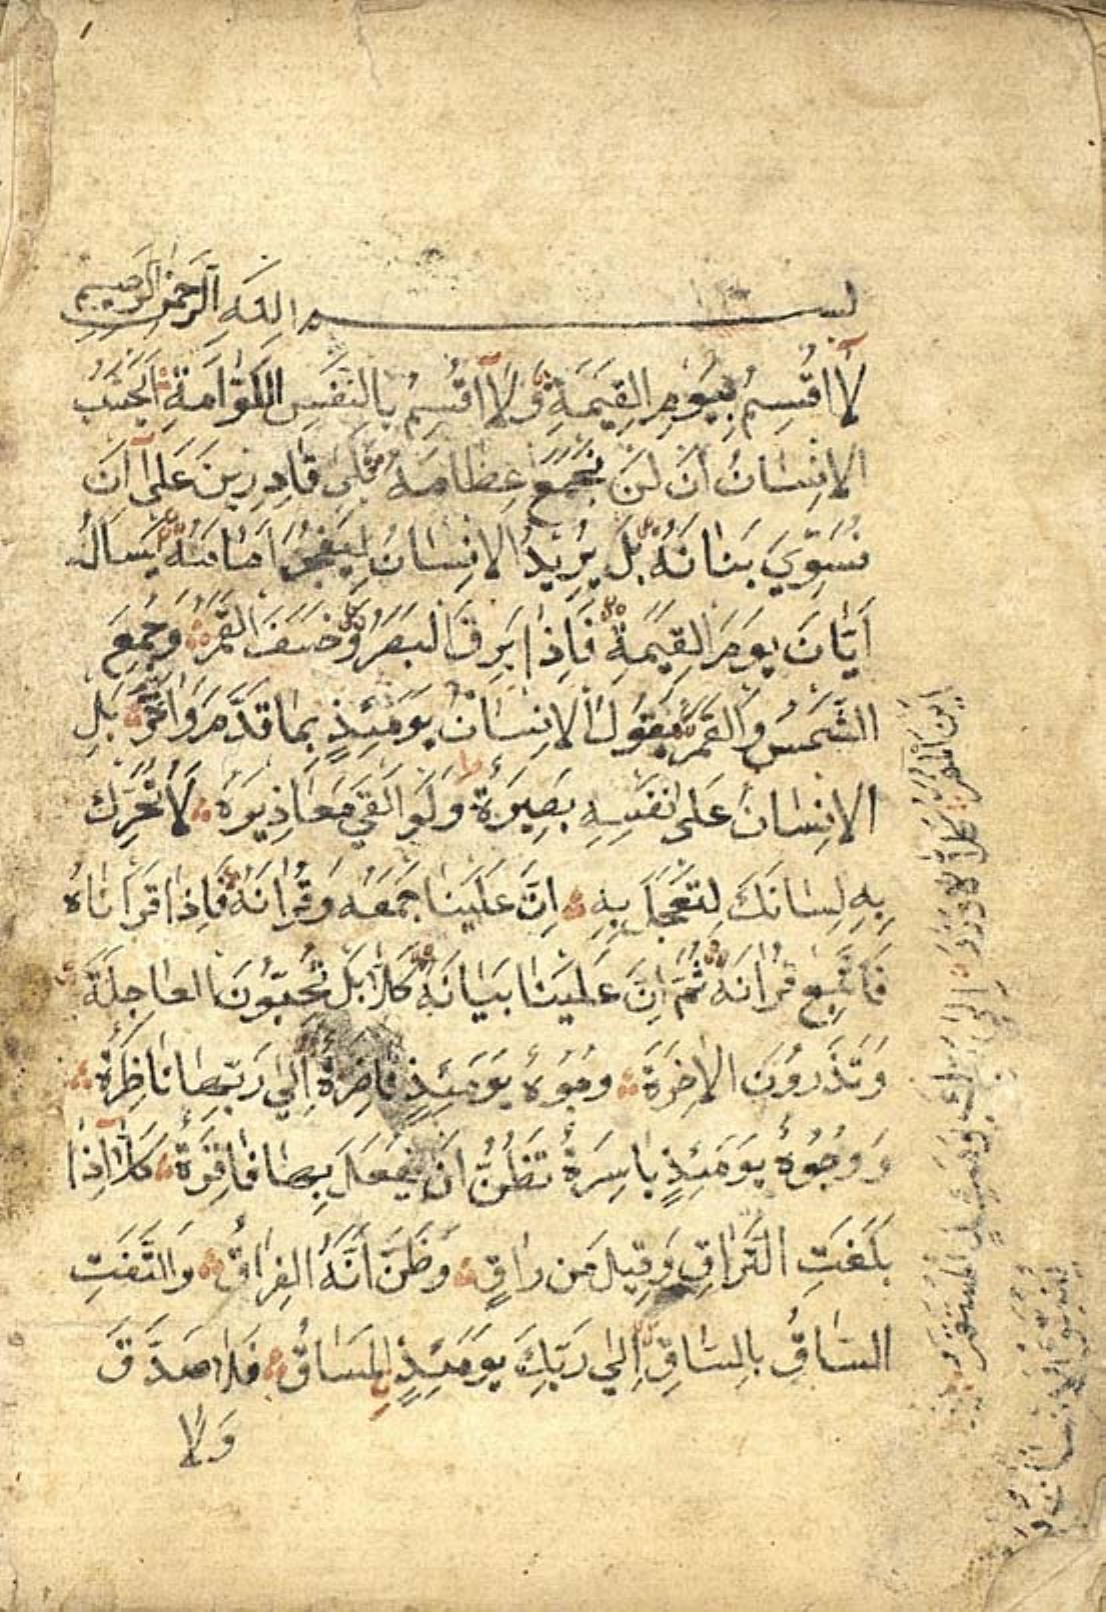 بسم الله الرحمن الرحيم
لَا أُقْسِمُ بِيَوْمِ الْقِيٰمَةِ وَلَا أُقْسِمُ بِالنَّفْسِ اللَّوَّامَةِ أَيَحْسَبُ
الْاِنْسَانُ اَنْ لَنْ نَجْمَعَ عِظَامَهُ بَلٰى قَادِرِينَ عَلٰى اَنْ
نُسَوِّيَ بَنَانَهُ بَلْ يُرِيدُ الْاِنْسَانُ لِيَفْجُرَ اَمَامَهُ يَسْاَلُ
اَيَّانَ يَوْمُ الْقِيٰمَةِ فَاِذَا بَرِقَ الْبَصَرُ وَخَسَفَ الْقَمَرُ وَجُمِعَ
الشَّمْسُ وَالْقَمَرُ يَقُولُ الْاِنْسَانُ يَوْمَئِذٍ بِمَا قَدَّمَ وَاَخَّرَ بَلِ
الْاِنْسَانُ عَلٰى نَفْسِهِ بَصِيرَةٌ وَلَوْ اَلْقٰى مَعَاذِيرَهُ لَا تُحَرِّكْ
بِهِ لِسَانَكَ لِتَعْجَلَ بِهِ اِنَّ عَلَيْنَا جَمْعَهُ وَقُرْاٰنَهُ فَاِذَا قَرَاْنَاهُ
فَاتَّبِعْ قُرْاٰنَهُ ثُمَّ اِنَّ عَلَيْنَا بَيَانَهُ كَلَّا بَلْ تُحِبُّونَ الْعَاجِلَةَ
وَتَذَرُونَ الْاٰخِرَةَ وُجُوهٌ يَوْمَئِذٍ نَاضِرَةٌ اِلٰى رَبِّهَا نَاظِرَةٌ
وَوُجُوهٌ يَوْمَئِذٍ بَاسِرَةٌ تَظُنُّ اَنْ يُفْعَلَ بِهَا فَاقِرَةٌ كَلَّا اِذَا
بَلَغَتِ التَّرَاقِ وَقِيلَ مَنْ رَاقٍ وَظَنَّ اَنَّهُ الْفِرَاقُ وَالْتَفَّتِ
السَّاقُ بِالسَّاقِ اِلٰى رَبِّكَ يَوْمَئِذٍ الْمَسَاقُ فَلَا صَدَّقَ
وَلَا
اَيْنَ الْمَفَرُّ كَلَّا لَا وَزَرَ اِلٰى رَبِّكَ يَوْمَئِذٍ الْمُسْتَقَرُّ
يُنَبَّؤُا الْاِنْسَانُ